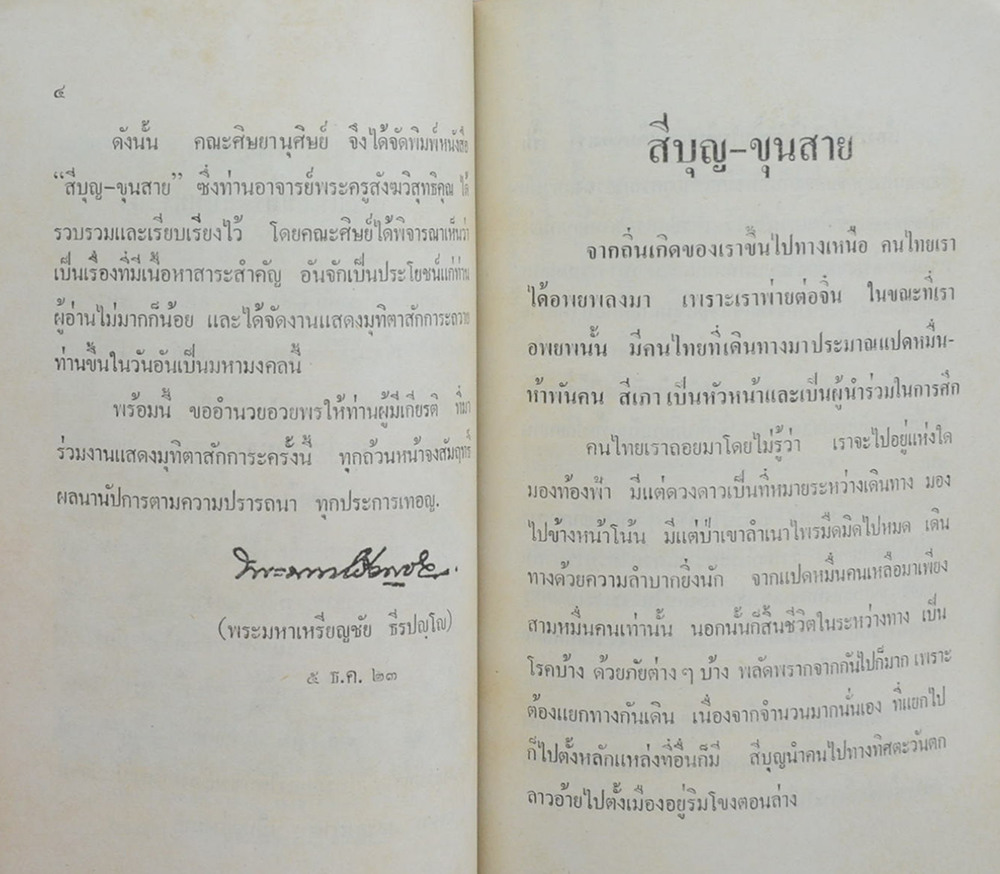 ๔
ดังนั้น คณะศิษยานุศิษย์ จึงได้จัดพิมพ์หนังสือ
“สี่บุญ-ขุนสาย” ซึ่งท่านอาจารย์พระครูสังฆวิสุทธิคุณ ได้
รวบรวมและเรียบเรียงไว้ โดยคณะศิษย์ได้พิจารณาเห็นว่า
เป็นเรื่องที่มีเนื้อหาสาระสำคัญ อันจักเป็นประโยชน์แก่ท่าน
ผู้อ่านไม่มากก็น้อย และได้จัดงานแสดงมุทิตาสักการะถวาย
ท่านขึ้นในวันอันเป็นมหามงคลนี้
พร้อมนี้ ขออำนวยอวยพรให้ท่านผู้มีเกียรติ ที่มา
ร่วมงานแสดงมุทิตาสักการะครั้งนี้ ทุกถ้วนหน้าจงสัมฤทธิ์
ผลนานัปการตามความปรารถนา ทุกประการเทอญ.
(พระมหาเหรียญชัย ธีรปญฺโญ)
๕ ธ.ค. ๒๓
สี่บุญ-ขุนสาย
จากถิ่นเกิดของเราขึ้นไปทางเหนือ คนไทยเรา
ได้อพยพลงมา เพราะเราพ่ายต่อจีน ในขณะที่เรา
อพยพนั้น มีคนไทยที่เดินทางมาประมาณแปดหมื่น-
ห้าพันคน สี่เภา เป็นหัวหน้าและเป็นผู้นำร่วมในการศึก
คนไทยเราถอยมาโดยไม่รู้ว่า เราจะไปอยู่แห่งใด
มองท้องฟ้า มีแต่ดวงดาวเป็นที่หมายระหว่างเดินทาง มอง
ไปข้างหน้าโน้น มีแต่ป่าเขาลำเนาไพรมืดมิดไปหมด เดิน
ทางด้วยความลำบากยิ่งนัก จากแปดหมื่นคนเหลือมาเพียง
สามหมื่นคนเท่านั้น นอกนั้นก็สิ้นชีวิตในระหว่างทาง เป็น
โรคบ้าง ด้วยภัยต่าง ๆ บ้าง พลัดพรากจากกันไปก็มาก เพราะ
ต้องแยกทางกันเดิน เนื่องจากจำนวนมากนั่นเอง ที่แยกไป
ก็ไปตั้งหลักแหล่งที่อื่นก็มี สี่บุญนำคนไปทางทิศตะวันตก
ลาวอ้ายไปตั้งเมืองอยู่ริมโขงตอนล่าง